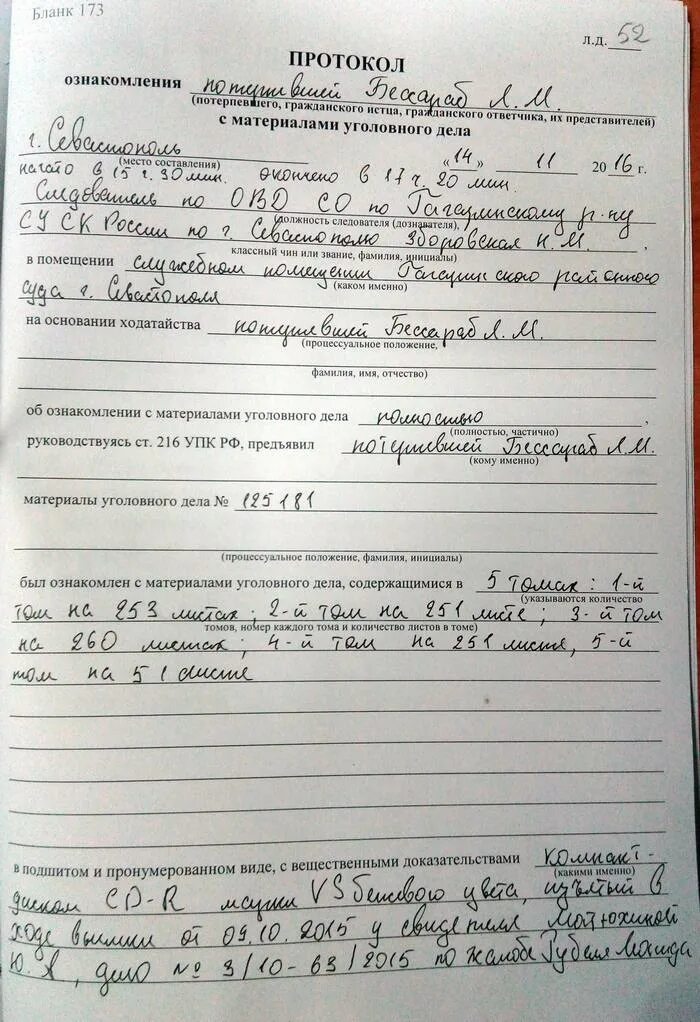 Бланк 173
Л.Д. 52
ПРОТОКОЛ
ознакомления потерпевшей Бессараб Л.М.
(потерпевшего, гражданского истца, гражданского ответчика, их представителей)
с материалами уголовного дела
г. Севастополь
(место составления)
«14» 11 2016 г.
начато в 15 ч. 30 мин. окончено в 17 ч. 20 мин.
Следователь по ОВД СО по Гагаринскому р-ну
(должность следователя (дознавателя),
СУ СК России по г. Севастополю Зборовская Н.М.,
классный чин или звание, фамилия, инициалы)
в помещении служебном помещении Гагаринского районного
(каком именно)
суда г. Севастополя
на основании ходатайства потерпевшей Бессараб Л.М.
(процессуальное положение,
фамилия, имя, отчество)
об ознакомлении с материалами уголовного дела полностью,
(полностью, частично)
руководствуясь ст. 216 УПК РФ, предъявил потерпевшей Бессараб Л.М.
(кому именно)
материалы уголовного дела № 125181
(процессуальное положение, фамилия, инициалы)
был ознакомлен с материалами уголовного дела, содержащимися в 5 томах: 1-й
(указываются количество
том на 253 листах; 2-й том на 251 листе; 3-й том
томов, номер каждого тома и количество листов в томе)
на 260 листах; 4-й том на 251 листе, 5-й
том на 51 листе
в подшитом и пронумерованном виде, с вещественными доказательствами компакт-
(какими именно)
диском CD-R марки VS бежевого цвета, изъятый в
ходе выемки от 09.10.2015 у свидетеля Матюхиной
Ю.А, дело № 3/10-63/2015 по жалобе Рубеля